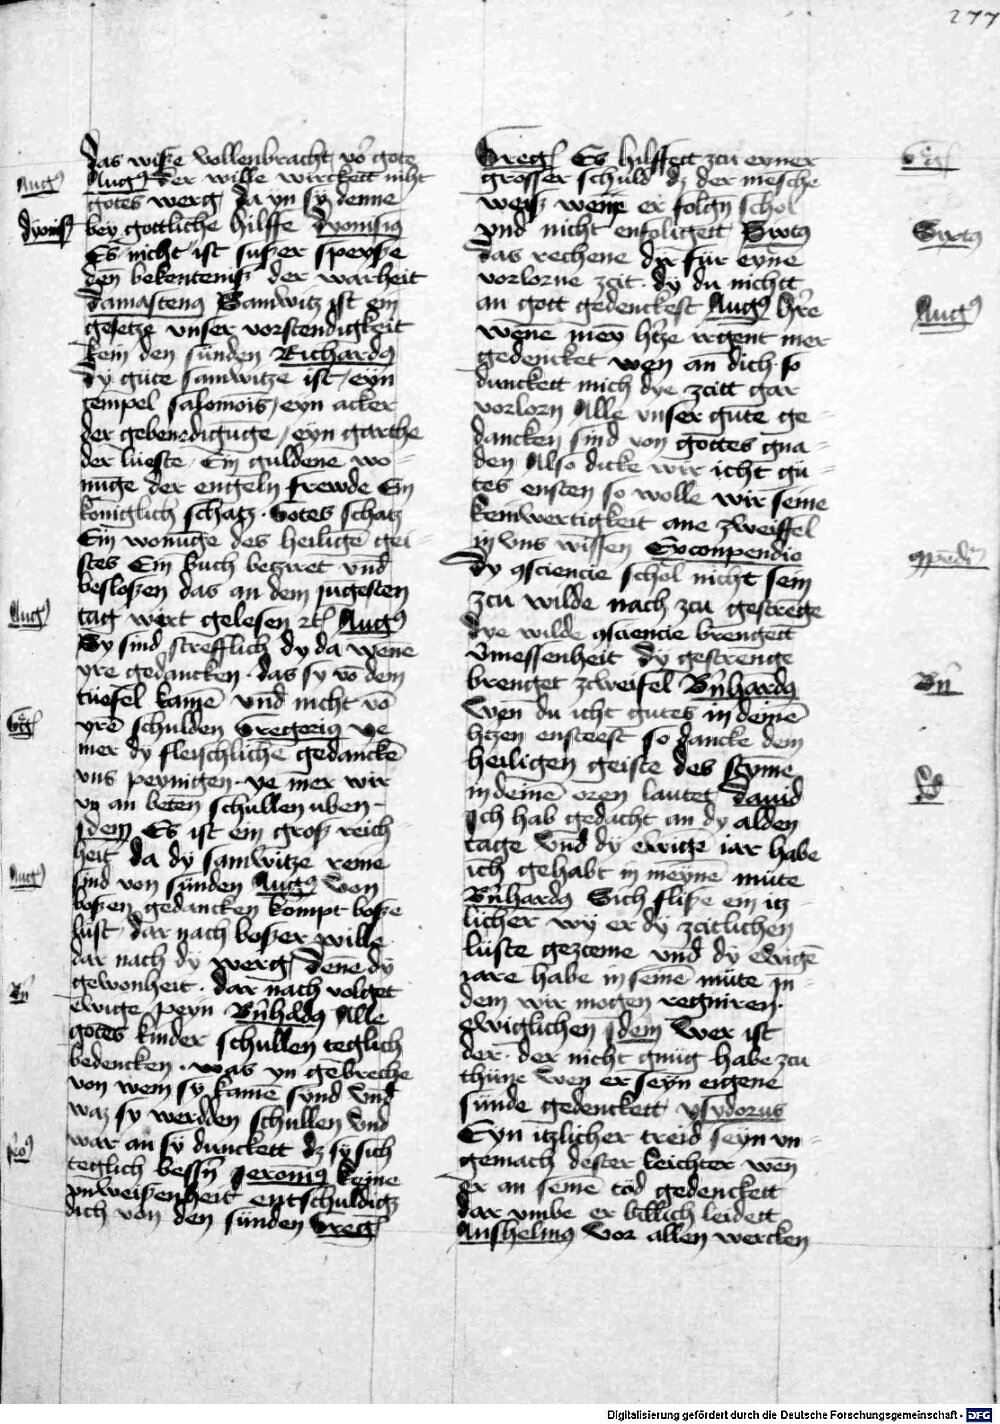 277
das wiße vollenbracht vō gote
Augꝰ
Augꝰ der wille wirckett niht
gotes werg da yn sy denne
dyonisꝰ
bey gottliche hilffe Dyonisius
Es nicht ist sußer speyße
den bekenteniß der warheit
Damastenꝰ Samwitz ist ein
gesetze vnser vorstendigkeit
kein den sünden Richardꝰ
dy güte samwitze ist / eyn
tempel salomois / eyn acker
der gebenedigūge / eyn garthe
der lueste / Ein guldene wo=
nūge der engeln frewde Ein
koniglich schatz · Gotes schatz
Ein wonūge des heilige gei=
stes Ein Buch bezwret vnd
besloßen das an dem jungesten
tag wirt gelesen ꝛc Augꝰ
Augꝰ
Sy sind strefflich dy da wenē
yre gedancken · das sy vō dem
tuefel kamē vnd nicht vō
Greg
yrē schulden Gregorius ye
mer dy fleischlichē gedanckē
vns peynigen · ye mer wir
yn an betēn schullen uben ·
jdem Es ist ein groß reich=
heit da dy samwitze reine
Augꝰ
sind von sünden Augꝰ von
boßen gedancken kompt boße
lust · dar nach boßer wille
dar nach dy werg dene dy
gewonheit · dar nach volget
Bn̄
ewige peyn Bn̄hardꝰ Alle
gotes kinder schullen teglich
bedencken · was yn gebreche
von wem sy kamē synd vnd
waz sy werdden schullen vnd
war an sy dunckett dz sy sich
Jeroꝰ
teglich bessn̄ Jeronimꝰ keine
vnweißenheit entschuldigz
dich von den sünden Greg
Greg Es hilffett zcu eyner
Greg
grosser schuld dz der mesche
weiß wenne er folgn schol
vnd nicht enfoligett Sixtꝰ
Sixtꝰ
das rechene dir für eyne
vorlorne zeit · dy du nichtt
an gott gedenckest Augꝰ h're
Augꝰ
wēne mey h'tze irgent mer
gedencket wen an dich so
dunckett mich dye zcitt gar
vorlorn Alle vnser gute ge=
dancken sind von gottes gna=
den Also dicke wir icht gu=
tes ensten so wolle wir seine
keinwertigkeit ane zweiffel
in vns wissen Ex conpendio
ꝯpendiū
dy ꝯsciencie schol nicht sein
zcu wilde nach zcu gestrēge
dye wilde ꝯsciencie brengett
vmessenheit dy gestrenge
brenget zcweifel Bn̄hardꝰ
Bn̄
wen du icht gutes in deinē
h'tzen ensteest so dancke dem
heiligen geiste des stȳme
in deinē oren lautet Dauid
Dd
Ich hab gedacht an dy alden
tage vnd dy ewigē iar habe
ich gehabt in meynē mute
Bn̄hardꝰ Sich fliße em itz
licher wy er dy zeitlichen
lüste gezceme vnd dy ewigē
iare habe in seinē mute in
dem wir mogen regniren ·
ewiglichen jdem Wer ist
der · der nicht gnüg habe zcu
thüne wen er seyn eigene
sünde gedenckett ysydorus
Eyn itzlicher treid seyn vn=
gemach dester leichter wen
er an seinē tod gedenckett
dar vmbe er billich leidett
Anshelmꝰ vor allen wercken
Digitalisierung gefördert durch die Deutsche Forschungsgemeinschaft - DFG